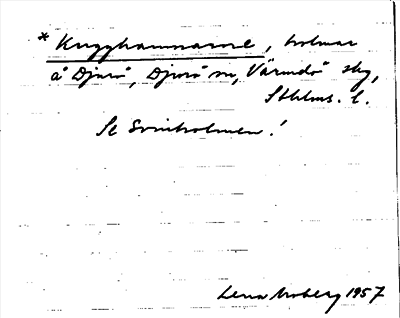 * Kugghamnarne, holmar
å Djurö, Djurö sn, Värmdö skg,
Sthlms. l.
Se Svinholmen!
Lena Moberg 1957